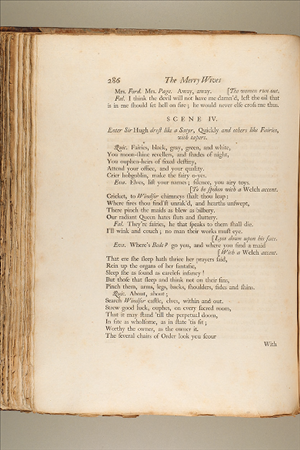 286 The Merry Wives
Mrs. Ford. Mrs. Page. Away, away. [The women run out.
Fal. I think the devil will not have me damn'd, lest the oil that
is in me should set hell on fire; he would never else cross me thus.
SCENE IV.
Enter Sir Hugh drest like a Satyr, Quickly and others like Fairies,
with tapers.
Quic. Fairies, black, gray, green, and white,
You moon-shine revellers, and shades of night,
You ouphen-heirs of fixed destiny,
Attend your office, and your quality.
Crier hobgoblin, make the fairy o-yes.
Eva. Elves, list your names; silence, you airy toys.
[To be spoken with a Welch accent.
Cricket, to Windsor chimneys shalt thou leap:
Where fires thou find'st unrak'd, and hearths unswept,
There pinch the maids as blew as bilbery.
Our radiant Queen hates sluts and sluttery.
Fal. They're fairies, he that speaks to them shall die.
I'll wink and couch; no man their works must eye.
[Lyes down upon his face.
Eva. Where's Bede? go you, and where you find a maid
[With a Welch accent.
That ere she sleep hath thrice her prayers said,
Rein up the organs of her fantasie,
Sleep she as sound as careless infancy!
But those that sleep and think not on their sins,
Pinch them, arms, legs, backs, shoulders, sides and shins.
Quic. About, about;
Search Windsor castle, elves, within and out.
Strew good luck, ouphes, on every sacred room,
That it may stand 'till the perpetual doom,
In site as wholsome, as in state 'tis fit;
Worthy the owner, as the owner it.
The several chairs of Order look you scour
With